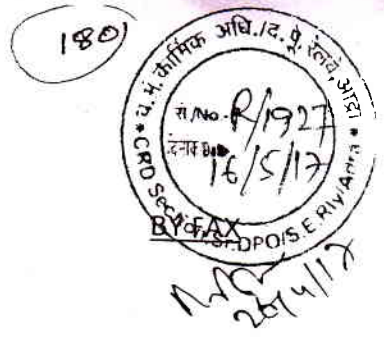 1801
व. मं. कार्मिक अधि./द. पू. रेलवे, आद्रा
सं./No. R/1927
दिनांक 16/5/17
CRD Section, Sr. DPO/S.E. Rly/Adra
BY FAX
20/4/17